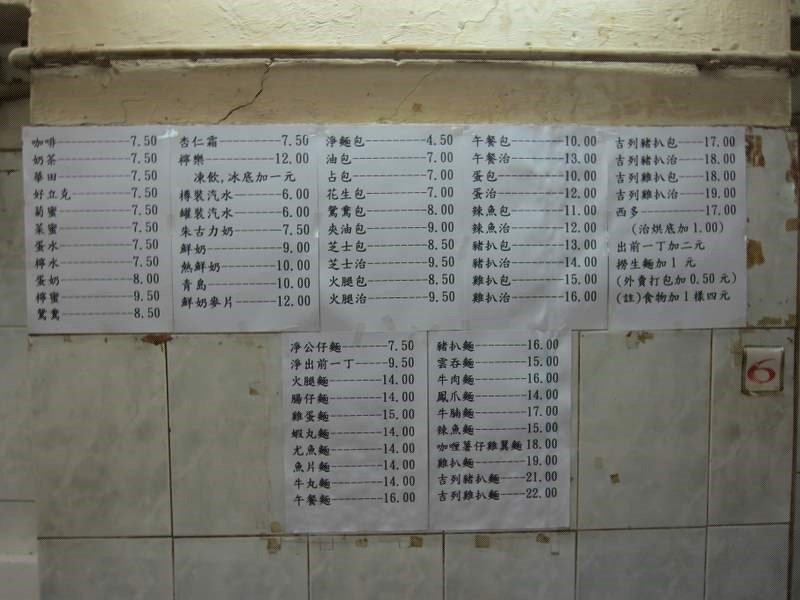 咖啡-----------7.50
奶茶-----------7.50
華田-----------7.50
好立克---------7.50
菊蜜-----------7.50
菜蜜-----------7.50
蛋水-----------7.50
檸水-----------7.50
蛋奶-----------8.00
檸蜜-----------9.50
鴛鴦-----------8.50
杏仁霜--------7.50
檸樂---------12.00
凍飲,冰底加一元
樽裝汽水------6.00
罐裝汽水------6.00
朱古力奶------7.50
鮮奶----------9.00
熱鮮奶-------10.00
青島---------10.00
鮮奶麥片-----12.00
淨麵包--------4.50
油包----------7.00
占包----------7.00
花生包--------7.00
鴛鴦包--------8.00
央油包--------9.00
芝士包--------8.50
芝士治--------9.50
火腿包--------8.50
火腿治--------9.50
午餐包-------10.00
午餐治-------13.00
蛋包---------10.00
蛋治---------12.00
辣魚包-------11.00
辣魚治-------12.00
豬扒包-------13.00
豬扒治-------14.00
雞扒包-------15.00
雞扒治-------16.00
吉列豬扒包----17.00
吉列豬扒治----18.00
吉列雞扒包----18.00
吉列雞扒治----19.00
西多---------17.00
(治烘底加1.00)
出前一丁加二元
撈生麵加1 元
(外賣打包加0.50元)
(註)食物加1樣四元
淨公仔麵--------7.50
淨出前一丁------9.50
火腿麵--------14.00
腸仔麵--------14.00
雞蛋麵--------15.00
蝦丸麵--------14.00
尤魚麵--------14.00
魚片麵--------14.00
牛丸麵--------14.00
午餐麵--------16.00
豬扒麵--------16.00
雲吞麵--------15.00
牛肉麵--------16.00
鳳爪麵--------14.00
牛腩麵--------17.00
辣魚麵--------15.00
咖喱薯仔雞翼麵 18.00
雞扒麵--------19.00
吉列豬扒麵----21.00
吉列雞扒麵----22.00
6